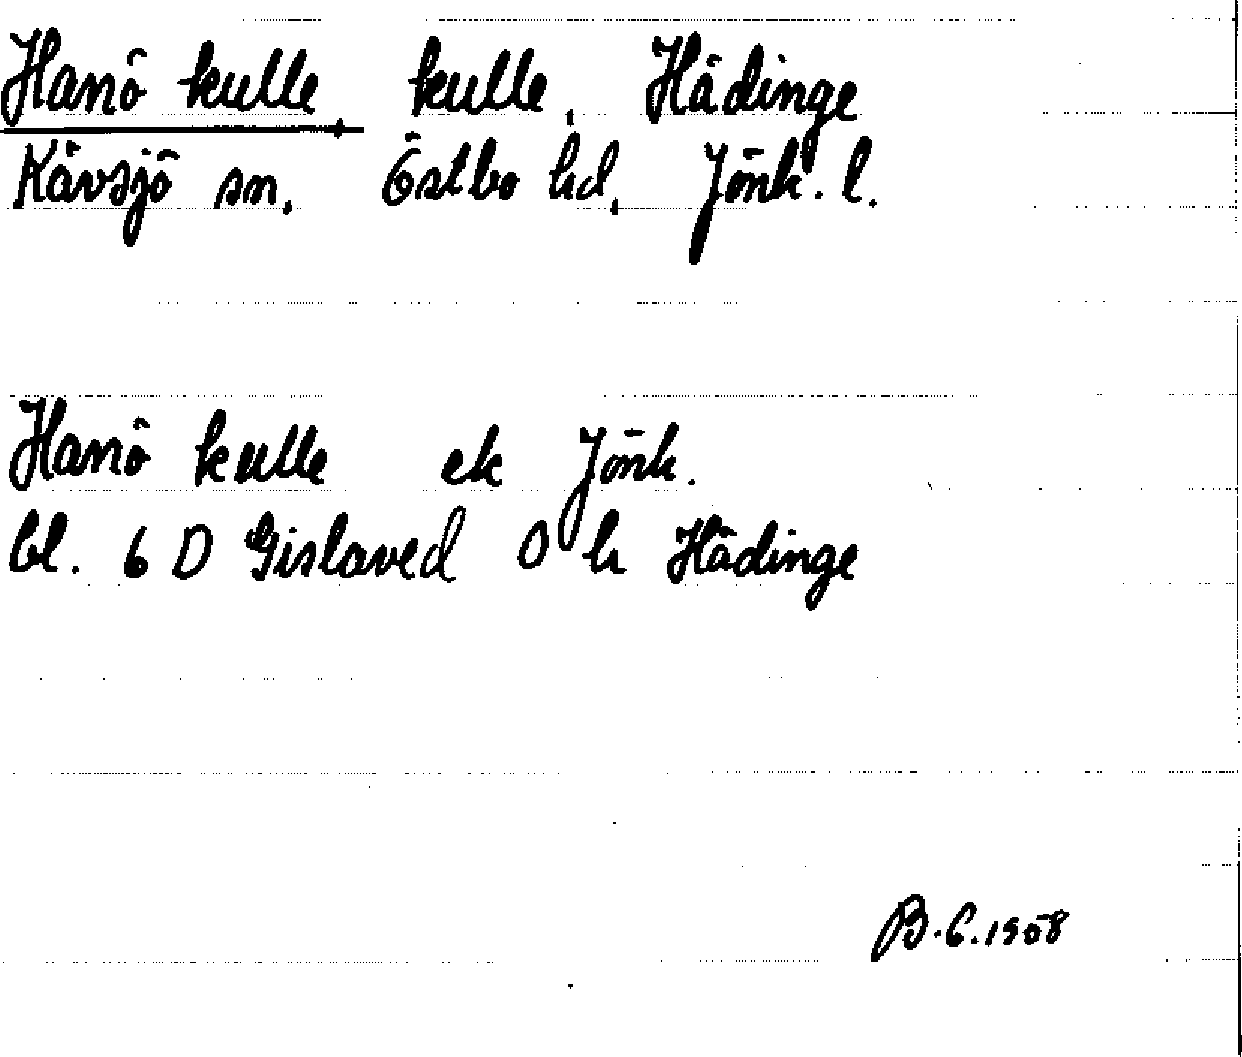 Hanö kulle kulle, Hädinge
Kävsjö sn, Östbo hd, Jönk. l.
Hanö kulle ek Jönk.
bl. 6 D Gislaved 0 h Hädinge
B.G. 1958